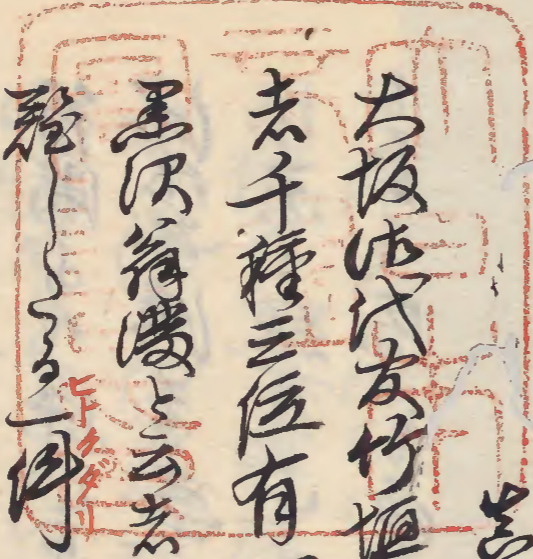 大坂御代官竹垣
者千種三位有
黒沢翁満と云者
難したる一件
ヒトクダリ